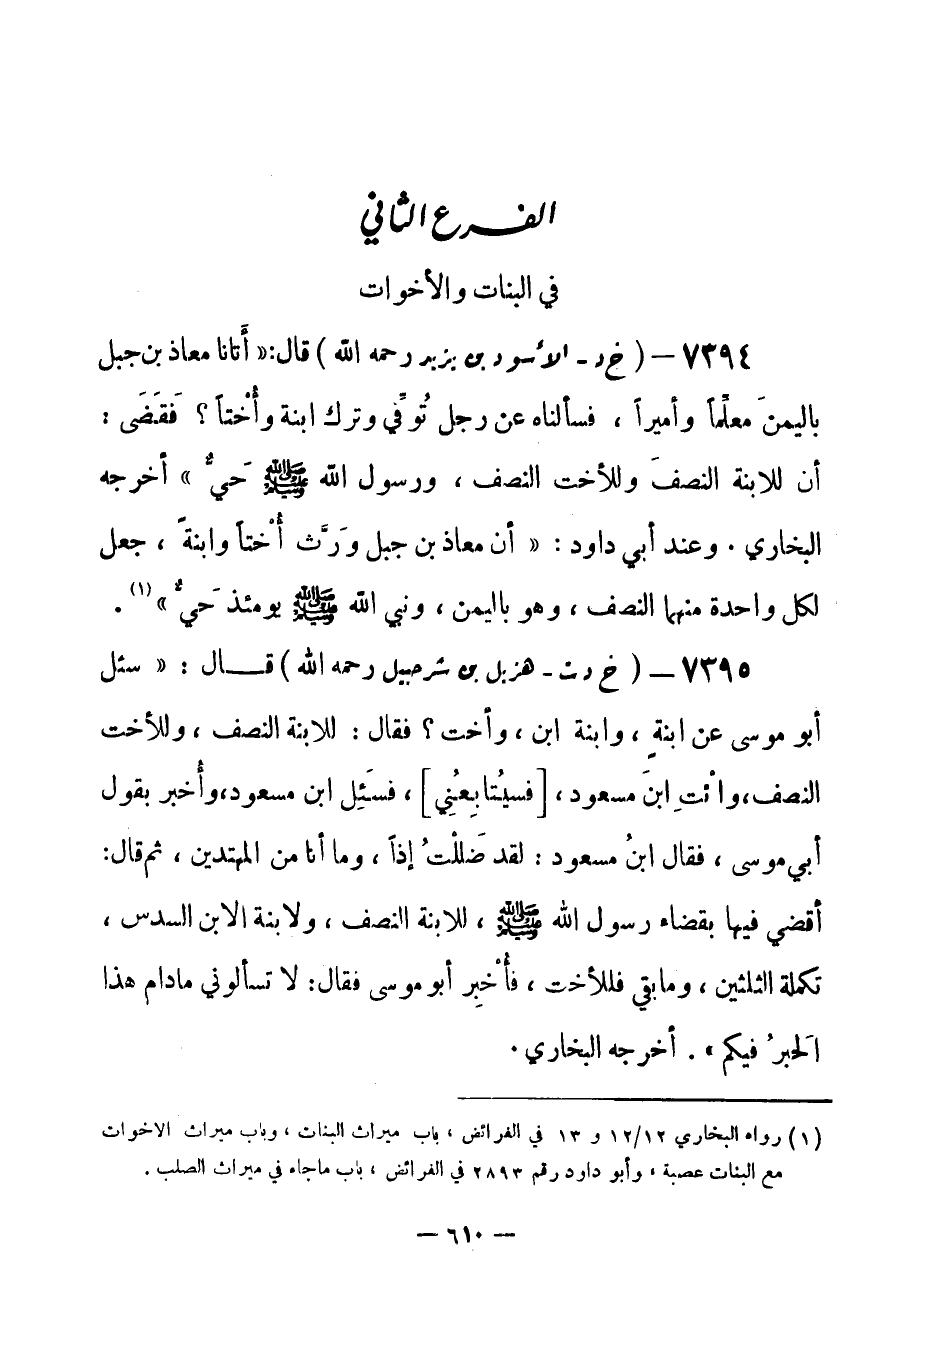 الفرع الثاني
في البنات والأخوات
٧٣٩٤ – ( خ د - الأسود بن يزيد رحمه الله ) قال: « أَتانا معاذ بن جبل
باليمنَ معلِّماً وأميراً ، فسألناه عن رجل تُوفِّي وترك ابنة وأُخْتاً ؟ فَقَضَى :
أن للابنة النصفَ وللأخت النصف ، ورسول الله ﷺ حَيٌّ » أخرجه
البخاري . وعند أبي داود : « أن معاذ بن جبل وَرَّث أُخْتاً وابنةً ، جعل
لكل واحدة منهما النصف ، وهو باليمن ، ونبي الله ﷺ يومئذ حَيٌّ » (١) .
٧٣٩٥ – ( خ د ت - هزيل بن شرحبيل رحمه الله ) قـــال : « سئل
أبو موسى عن ابنةٍ ، وابنة ابن ، وأخت ؟ فقال : للابنة النصف ، وللأخت
النصف، وائْتِ ابنَ مسعود ، [ فسيُتابِعُني ] ، فسَئِل ابن مسعود، وأُخبر بقول
أبي موسى ، فقال ابنُ مسعود : لقد ضَللْتُ إذاً ، وما أنا من المهتدين ، ثم قال:
أقضي فيها بقضاء رسول الله ﷺ ، للابنة النصف ، ولابنة الابن السدس ،
تكملة الثلثين ، وما بقي فللأخت ، فأُخْبِر أبو موسى فقال: لا تسألوني مادام هذا
الَحبرُ فيكم » . أخرجه البخاري .
(١) رواه البخاري ١٢/١٢ و ١٣ في الفرائض ، باب ميراث البنات ، وباب ميراث الاخوات
مع البنات عصبة ، وأبو داود رقم ٢٨٩٣ في الفرائض ، باب ماجاء في ميراث الصلب .
– ٦١٠ –